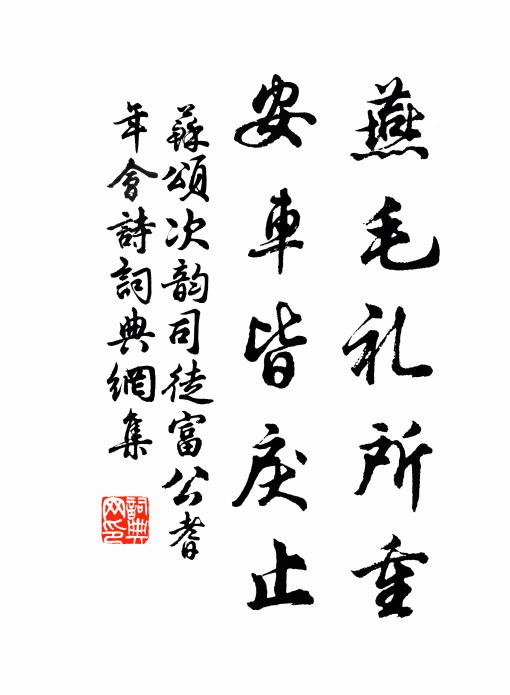 燕毛礼所重
安車皆戾止
蘇頌次韵司徒富公耆
年會詩詞典網集
詞典
网印